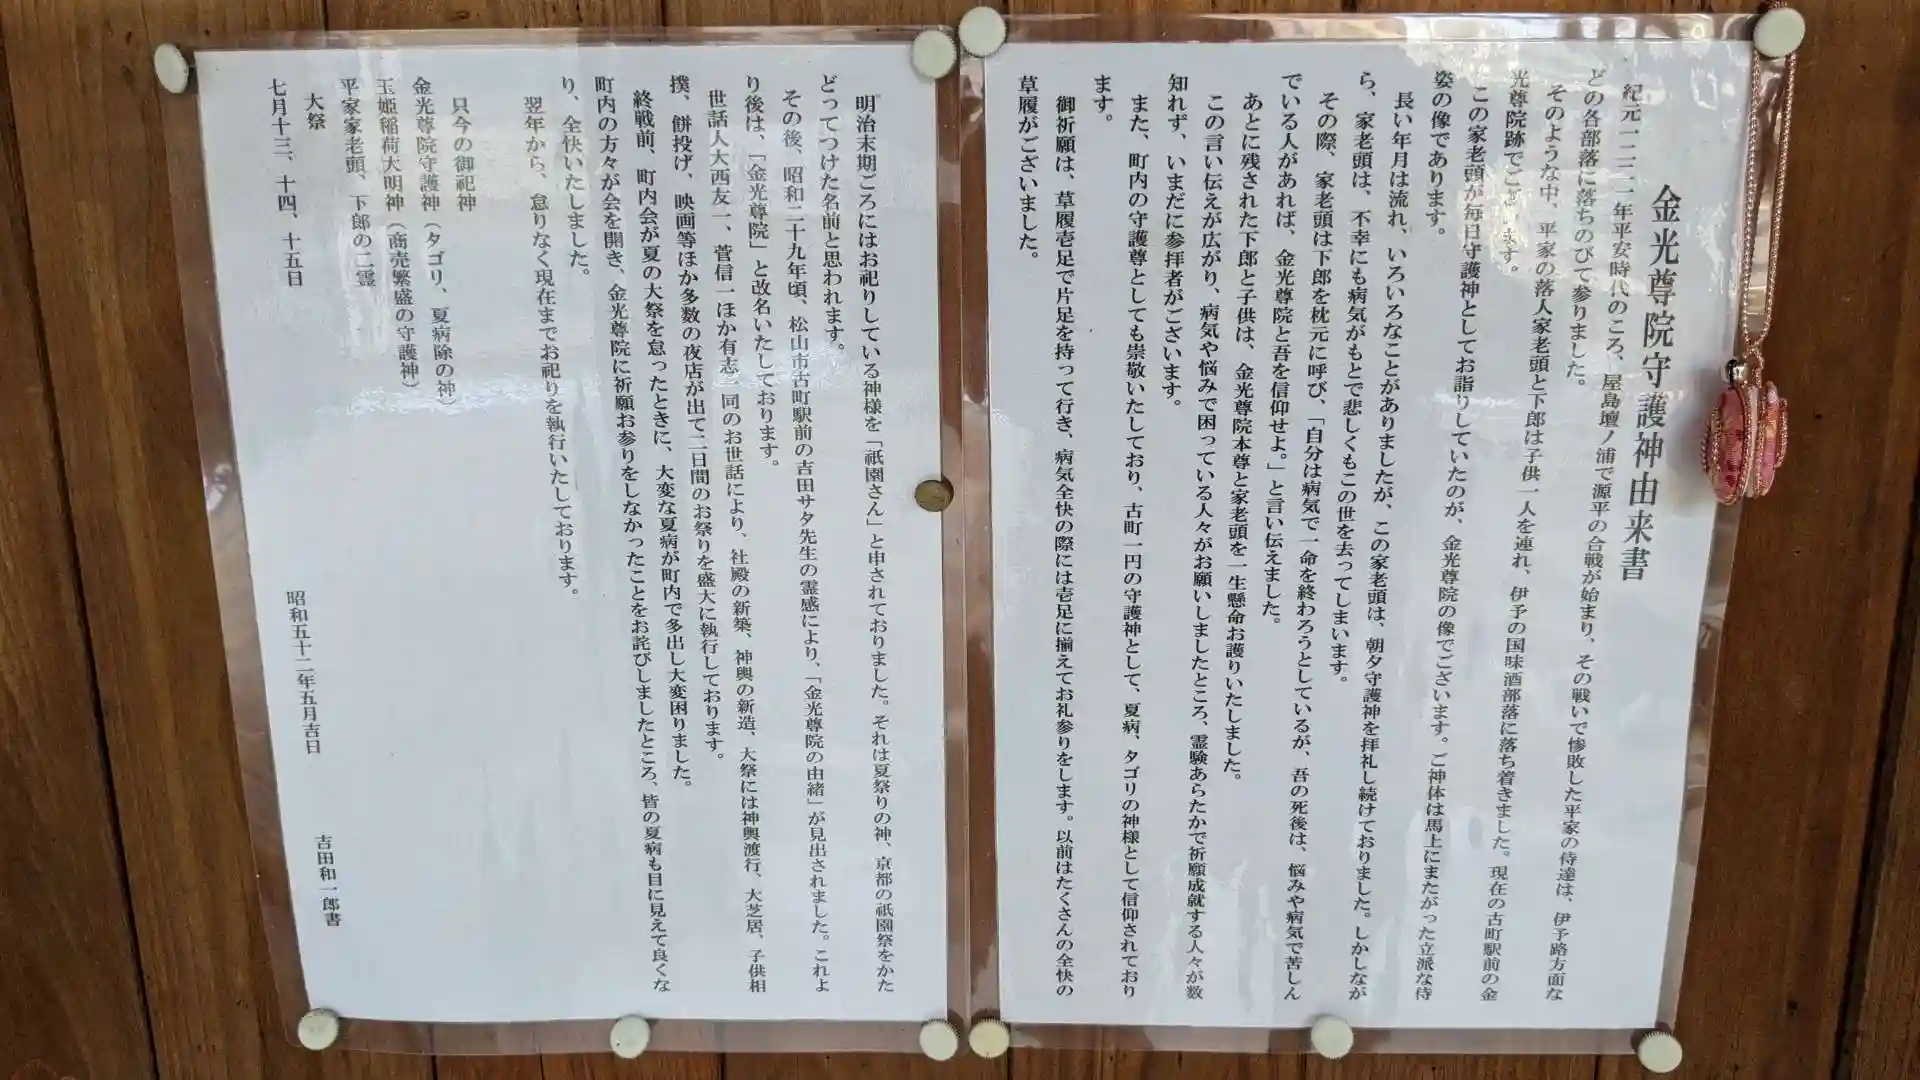 金光尊院守護神由来書
紀元一一二一年平安時代のころ、屋島壇ノ浦で源平の合戦が始まり、その戦いで惨敗した平家の侍達は、伊予路方面な
どの各部落に落ちのびて参りました。
そのような中、平家の落人家老頭と下郎は子供一人を連れ、伊予の国味酒部落に落ち着きました。現在の古町駅前の金
光尊院跡でございます。
この家老頭が毎日守護神としてお詣りしていたのが、金光尊院の像でございます。ご神体は馬上にまたがった立派な侍
姿の像であります。
長い年月は流れ、いろいろなことがありましたが、この家老頭は、朝夕守護神を拝礼し続けておりました。しかしなが
ら、家老頭は、不幸にも病気がもとで悲しくもこの世を去ってしまいます。
その際、家老頭は下郎を枕元に呼び、「自分は病気で一命を終わろうとしているが、吾の死後は、悩みや病気で苦しん
でいる人があれば、金光尊院と吾を信仰せよ。」と言い伝えました。
あとに残された下郎と子供は、金光尊院本尊と家老頭を一生懸命お護りいたしました。
この言い伝えが広がり、病気や悩みで困っている人々がお願いしましたところ、霊験あらたかで祈願成就する人々が数
知れず、いまだに参拝者がございます。
また、町内の守護尊としても崇敬いたしており、古町一円の守護神として、夏病、タゴリの神様として信仰されており
ます。
御祈願は、草履壱足で片足を持って行き、病気全快の際には壱足に揃えてお礼参りをします。以前はたくさんの全快の
草履がございました。
明治末期ごろにはお祀りしている神様を「祇園さん」と申されておりました。それは夏祭りの神、京都の祇園祭をかた
どってつけた名前と思われます。
その後、昭和二十九年頃、松山市古町駅前の吉田サタ先生の霊感により、「金光尊院の由緒」が見出されました。これよ
り後は、「金光尊院」と改名いたしております。
世話人大西友一、菅信一ほか有志一同のお世話により、社殿の新築、神輿の新造、大祭には神輿渡行、大芝居、子供相
撲、餅投げ、映画等ほか多数の夜店が出て二日間のお祭りを盛大に執行しております。
終戦前、町内会が夏の大祭を怠ったときに、大変な夏病が町内で多出し大変困りました。
町内の方々が会を開き、金光尊院に祈願お参りをしなかったことをお詫びしましたところ、皆の夏病も目に見えて良くな
り、全快いたしました。
翌年から、怠りなく現在までお祀りを執行いたしております。
只今の御祀神
金光尊院守護神（タゴリ、夏病除の神）
玉姫稲荷大明神（商売繁盛の守護神）
平家家老頭、下郎の二霊
大祭
七月十三、十四、十五日
昭和五十二年五月吉日
吉田和一郎書